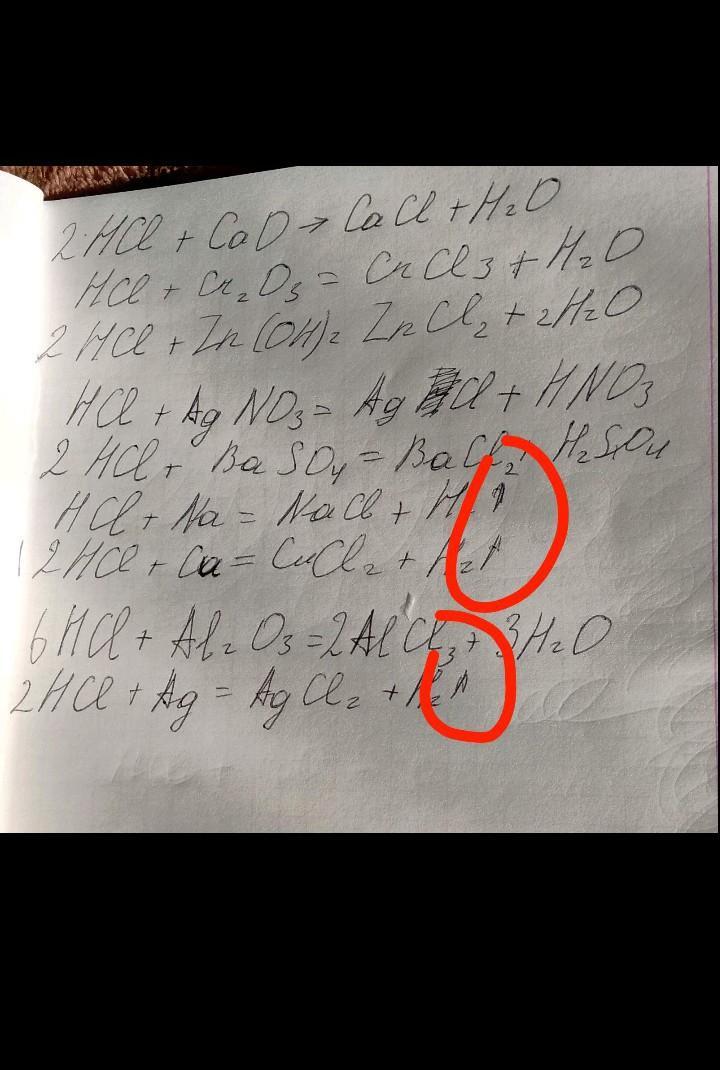 2·HCl + CaO → CaCl + H₂O
HCl + Cr₂O₃ = CrCl₃ + H₂O
2 HCl + Zn(OH)₂ ZnCl₂ + 2H₂O
HCl + AgNO₃ = AgCl + HNO₃
2 HCl + BaSO₄ = BaCl₂ + H₂SO₄
HCl + Na = NaCl + H₂↑
2HCl + Ca = CuCl₂ + H₂↑
6HCl + Al₂O₃ = 2AlCl₃ + 3H₂O
2HCl + Ag = AgCl₂ + H₂↑